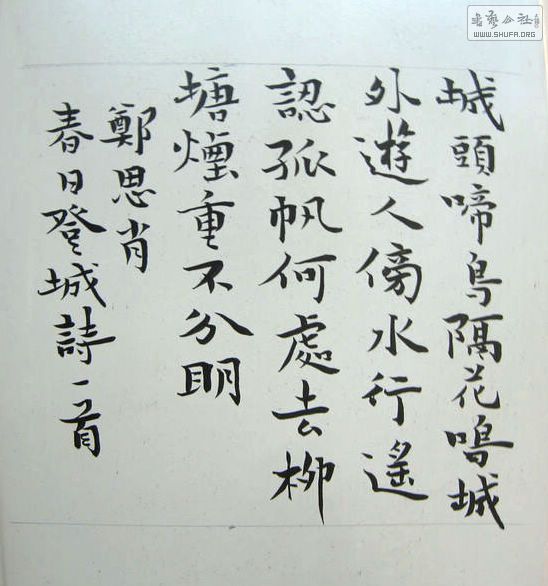 城頭啼鳥隔花鳴城
外遊人傍水行遙
認孤帆何處去柳
塘煙重不分明
鄭思肖
春日登城詩一首
書藝公社
WWW.SHUFA.ORG